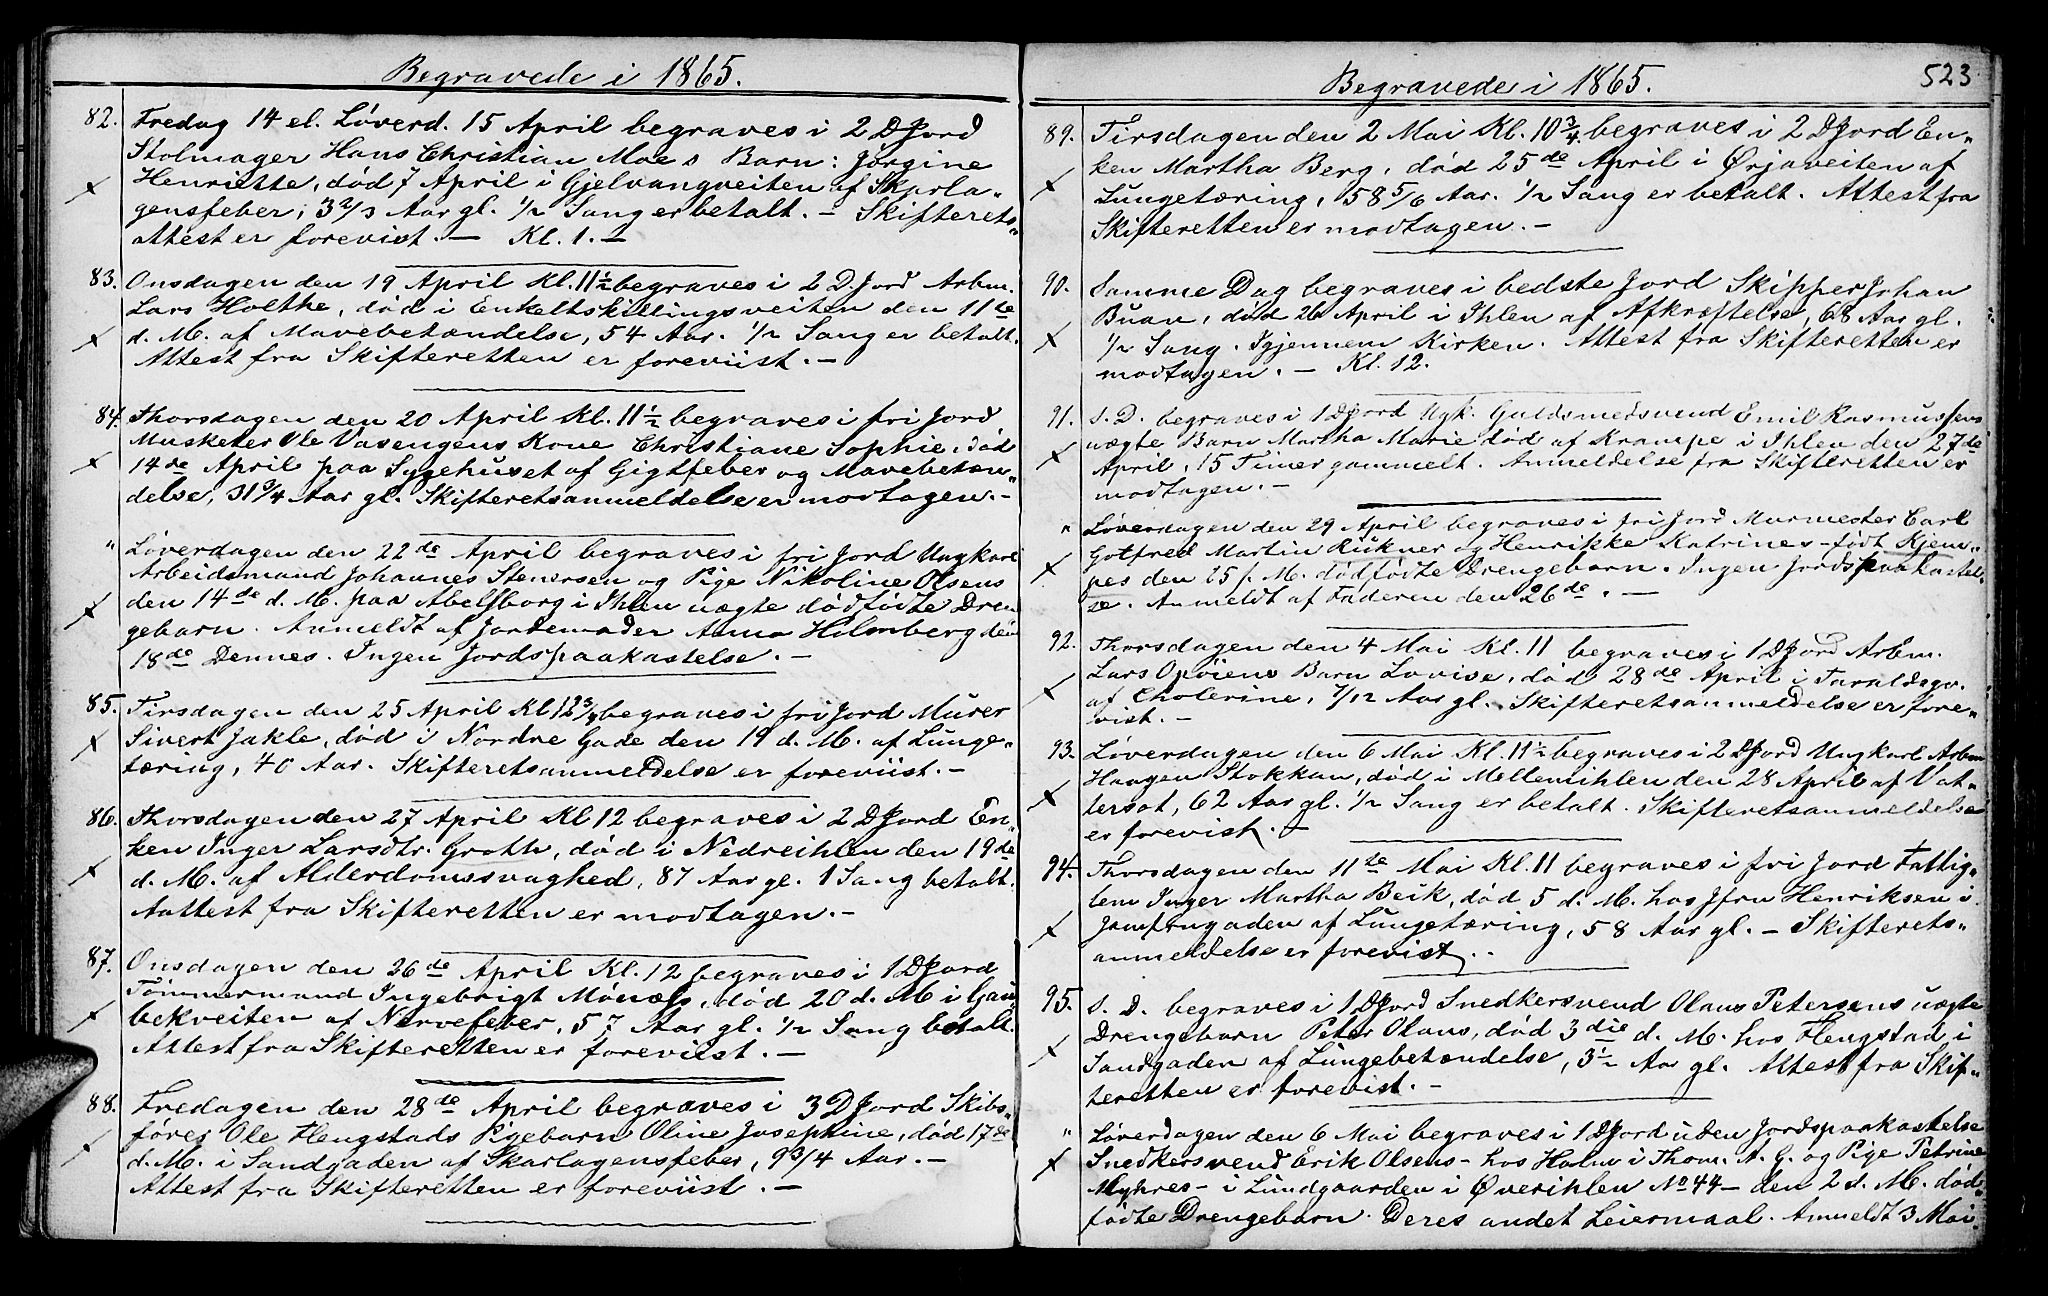 Begravede i 1865.
82. Fredag 14 el. Løverd. 15 April begraves i 2 D Jord
Stolmager Hans Christian Moes Barn: Jørgine
Henriette, død 7 April i Gjelvangveiten af Skarla-
gensfeber, 3 2/3 Aar gl. 1/2 Sang er betalt. – Skifterets-
attest er forevist. – Kl. 1. –
83. Onsdagen den 19 April Kl. 11 1/2 begraves i 2 D. Jord Arbm.
Lars Holthe, død i Enkeltskillingsveiten den 11te
d. M. af Mavebetændelse, 54 Aar. 1/2 Sang er betalt.
Attest fra Skifteretten er foreviist. –
84. Thorsdagen den 20 April Kl. 11 1/2 begraves i fri Jord
Musketer Ole Vasengens Kone Christiane Sophie, død
14de April paa Sygehuset af Gigtfeber og Mavebetæn-
delse, 31 3/4 Aar gl. Skifteretsanmeldelse er modtagen. –
" Løverdagen den 22de April begraves i fri Jord Ungkarl
Arbeidsmand Johannes Stenersen og Pige Nikoline Olsens
den 14de d. M. paa Abelsborg i Ihlen uægte dødfødte Dren
gebarn. Anmeldt af Jordemoder Anna Holmberg den
18de Dennes. Ingen Jordspaakastelse. –
85. Tirsdagen den 25 April Kl 12 3/4 begraves i fri Jord Murer
Sivert Jakle, død i Nordre Gade den 19 d. M. af Lunge-
tæring, 40 Aar. Skifteretsanmeldelse er foreviist. –
86. Thorsdagen den 27 April Kl 12 begraves i 2 D Jord En-
ken Inger Larsdtr. Groth, død i Nedreihlen den 19de
d. M. af Alderdomssvaghed, 87 Aar gl. 1 Sang betalt.
Aattest fra Skifteretten er modtagen. –
87. Onsdagen den 26de April Kl. 12 begraves i 1 D Jord
Tømmermand Ingebrigt Monæss, død 20 d. M i Gau
bekveiten af Nervefeber, 57 Aar gl. 1/2 Sang betalt.
Attest fra Skifteretten er foreviist. –
88. Fredagen den 28de April begraves i 3 D Jord Skibs-
fører Ole Hengstads Pigebarn Oline Josephine, død 17de
d. M. i Sandgaden af Skarlagensfeber, 9 3/4 Aar. –
Attest fra Skifteretten er foreviist. –
Begravede i 1865. 523
89. Tirsdagen den 2 Mai Kl. 10 3/4 begraves i 2 D Jord En-
ken Martha Berg, død 25de April i Ørjaveiten af
Lungetæring, 58 5/6 Aar. 1/2 Sang er betalt. Attest fra
Skifteretten er modtagen. –
90. Samme Dag begraves i bedste Jord Skipper Johan
Buan, død 26 April i Ihlen af Afkræftelse, 68 Aar gl.
1/2 Sang. Igjennem Kirken. Attest fra Skifteretten er
modtagen. – Kl. 12.
91. S. D. begraves i 1 D Jord Ugk. Guldsmedsvend Emil Rasmussens
uægte Barn Martha Marie død af Krampe i Ihlen den 27de
April, 15 Timer gammelt. Anmeldelse fra Skifteretten er
modtagen. –
" Løverdagen den 29 April begraves i fri Jord Murmester Carl
Gotfred Martin Rükner og Henrikke Katrines – født Kjem-
pes den 25 f. M. dødfødte Drengebarn. Ingen Jordspaakastel-
se. Anmeldt af Faderen den 26de. –
92. Thorsdagen den 4 Mai Kl. 11 begraves i 1 D Jord Arbm.
Lars Opøiens Barn Lovise, død 28de April i Taraldsgv.
af Cholerine, 7/12 Aar gl. Skifteretsanmeldelse er fore-
vist. –
93. Løverdagen den 6 Mai Kl. 11 1/2 begraves i 2 D Jord Ungkarl Arbm
Haagen Stokkan, død i Mellemihlen den 28 April af Vat-
tersot, 62 Aar gl. 1/2 Sang er betalt. Skifteretsanmeldelse
er forevist. –
94. Thorsdagen den 11te Mai Kl. 11 begraves i fri Jord Fattig-
lem Inger Martha Beik, død 5 d. M. hos Jfru Henriksen i
Jomfrugaden af Lungetæring, 58 Aar gl. – Skifterets-
anmeldelse er forevist. .
95. S. D. begraves i 1 D Jord Snedkersvend Olaus Petersens uægte
Drengebarn Peter Olaus, død 3die d. M. hos Hengstad i
Sandgaden af Lungebetændelse, 3 1/2 Aar gl. Attest fra Skif-
teretten er forevist. –
" Løverdagen den 6 Mai begraves i 1 D Jord uden Jordspaakastelse
Snedkersvend Erik Olsens – hos Holm i Thom. A. G. og Pige Petrine
Myhres – i Lundgaarden i Øverihlen No 44 – den 2 d. M. død-
fødte Drengebarn. Deres andet Leiermaal. Anmeldt 3 Mai.